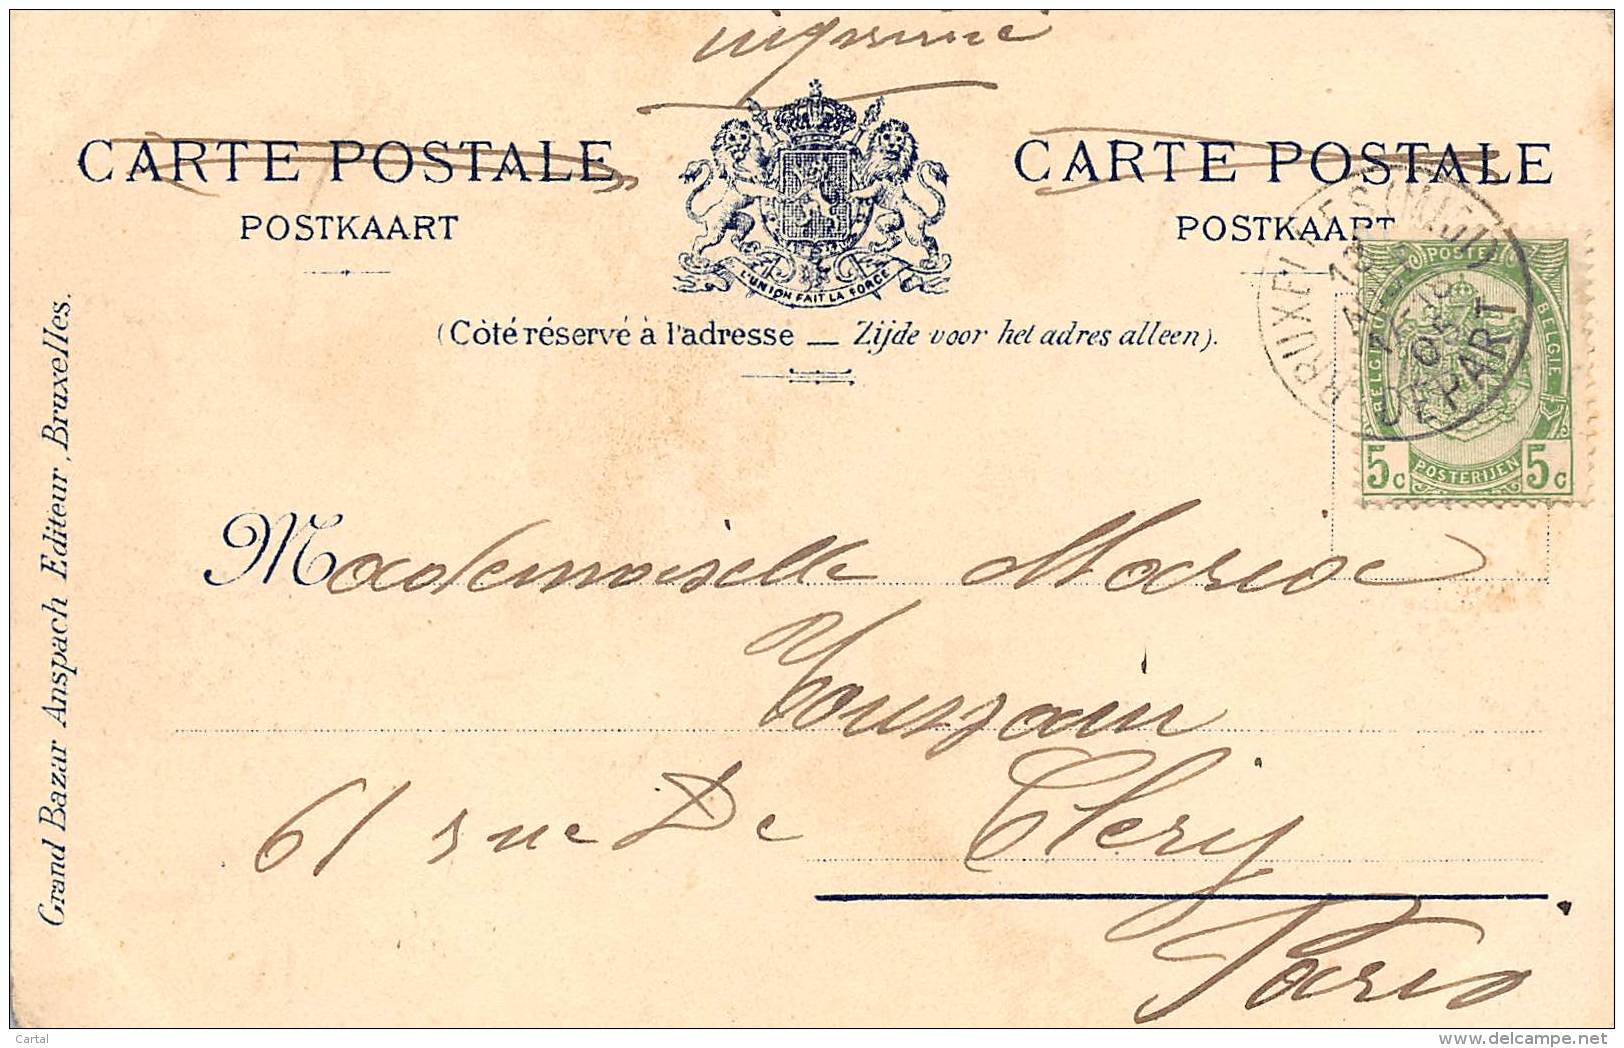 imprimé
CARTE POSTALE
POSTKAART
L'UNION FAIT LA FORCE
CARTE POSTALE
POSTKAART
(Côté réservé à l'adresse — Zijde voor het adres alleen).
BRUXELLES (MIDI)
DEPART
POSTES
BELGIQUE
BELGIE
5c POSTERIJEN 5c
Grand Bazar Anspach Editeur, Bruxelles.
Mademoiselle Marie
Toussain
61 rue De Clery
Paris
Cartal
www.delcampe.net